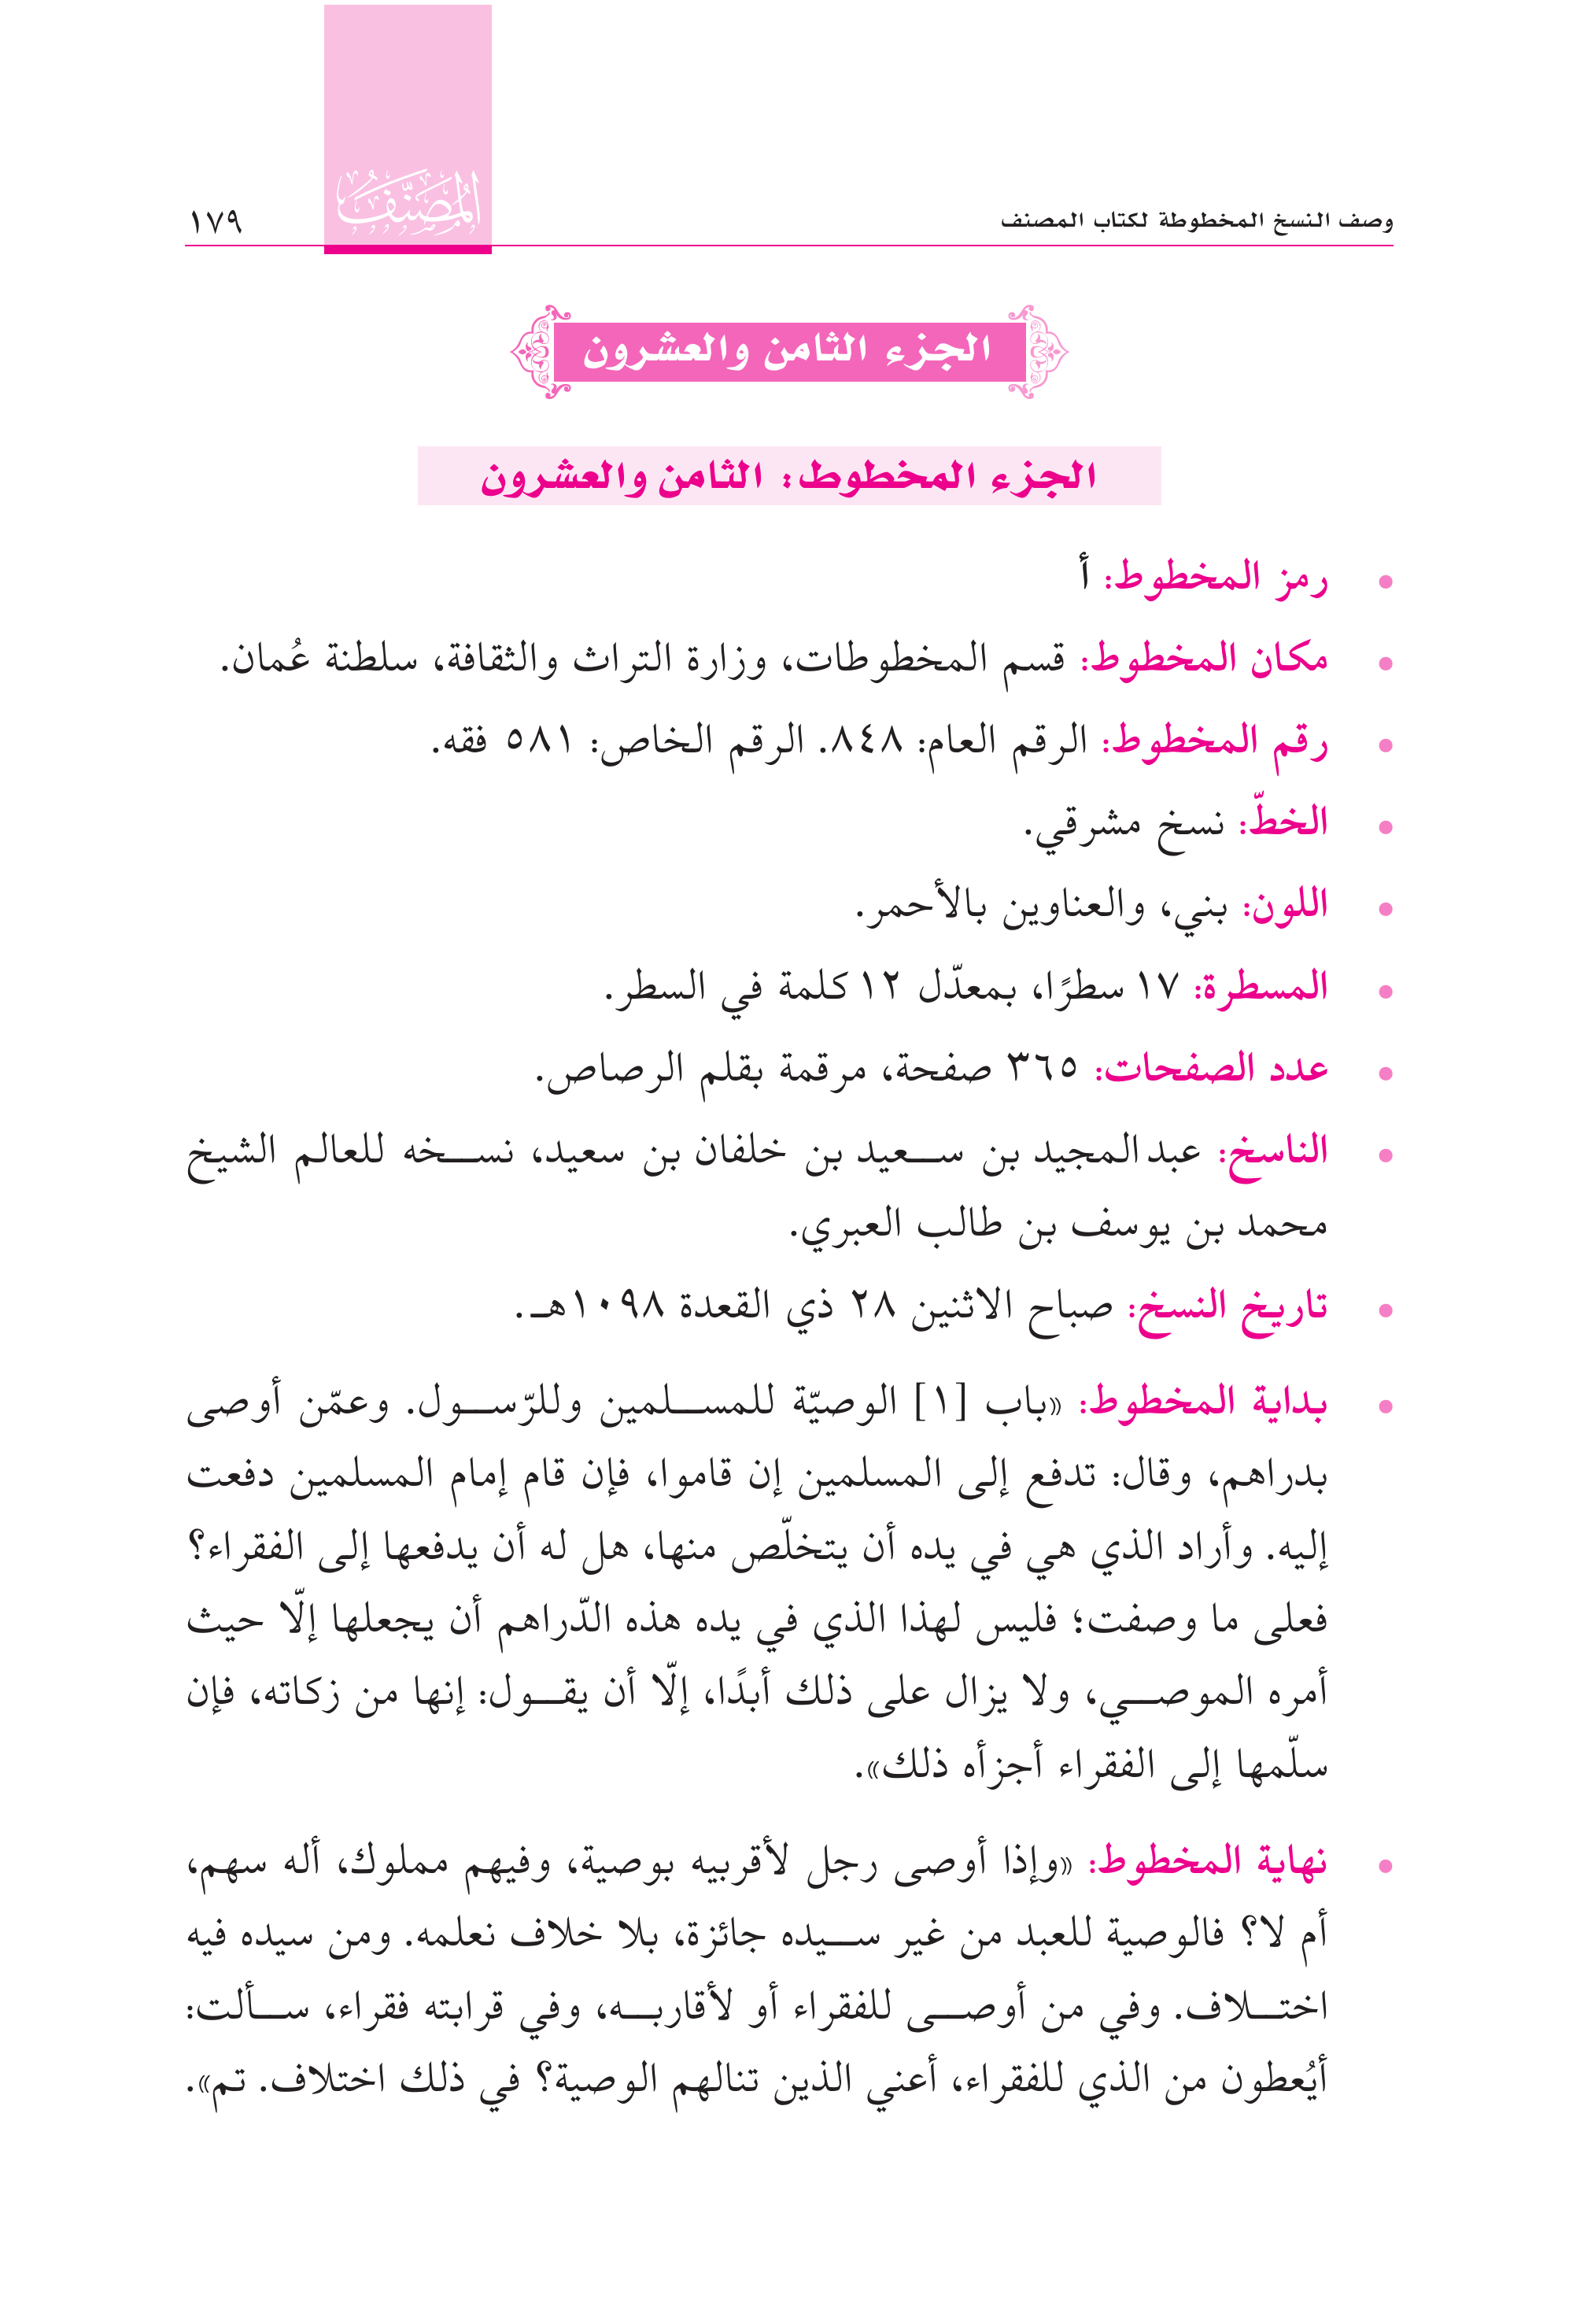 وصف النسخ المخطوطة لكتاب المصنف
المصنّف
١٧٩
الجزء الثامن والعشرون
الجزء المخطوط: الثامن والعشرون
• رمز المخطوط: أ
• مكان المخطوط: قسم المخطوطات، وزارة التراث والثقافة، سلطنة عُمان.
• رقم المخطوط: الرقم العام: ٨٤٨. الرقم الخاص: ٥٨١ فقه.
• الخطّ: نسخ مشرقي.
• اللون: بني، والعناوين بالأحمر.
• المسطرة: ١٧ سطرًا، بمعدّل ١٢ كلمة في السطر.
• عدد الصفحات: ٣٦٥ صفحة، مرقمة بقلم الرصاص.
• الناسخ: عبد المجيد بن سـعيد بن خلفان بن سعيد، نسـخه للعالم الشيخ
محمد بن يوسف بن طالب العبري.
• تاريخ النسخ: صباح الاثنين ٢٨ ذي القعدة ١٠٩٨هـ.
• بداية المخطوط: «باب [١] الوصيّة للمسـلمين وللرّسـول. وعمّن أوصى
بدراهم، وقال: تدفع إلى المسلمين إن قاموا، فإن قام إمام المسلمين دفعت
إليه. وأراد الذي هي في يده أن يتخلّص منها، هل له أن يدفعها إلى الفقراء؟
فعلى ما وصفت؛ فليس لهذا الذي في يده هذه الدّراهم أن يجعلها إلّا حيث
أمره الموصـي، ولا يزال على ذلك أبدًا، إلّا أن يقـول: إنها من زكاته، فإن
سلّمها إلى الفقراء أجزأه ذلك».
• نهاية المخطوط: «وإذا أوصى رجل لأقربيه بوصية، وفيهم مملوك، أله سهم،
أم لا؟ فالوصية للعبد من غير سـيده جائزة، بلا خلاف نعلمه. ومن سيده فيه
اختـلاف. وفي من أوصـى للفقراء أو لأقاربـه، وفي قرابته فقراء، سـألت:
أيُعطون من الذي للفقراء، أعني الذين تنالهم الوصية؟ في ذلك اختلاف. تم».